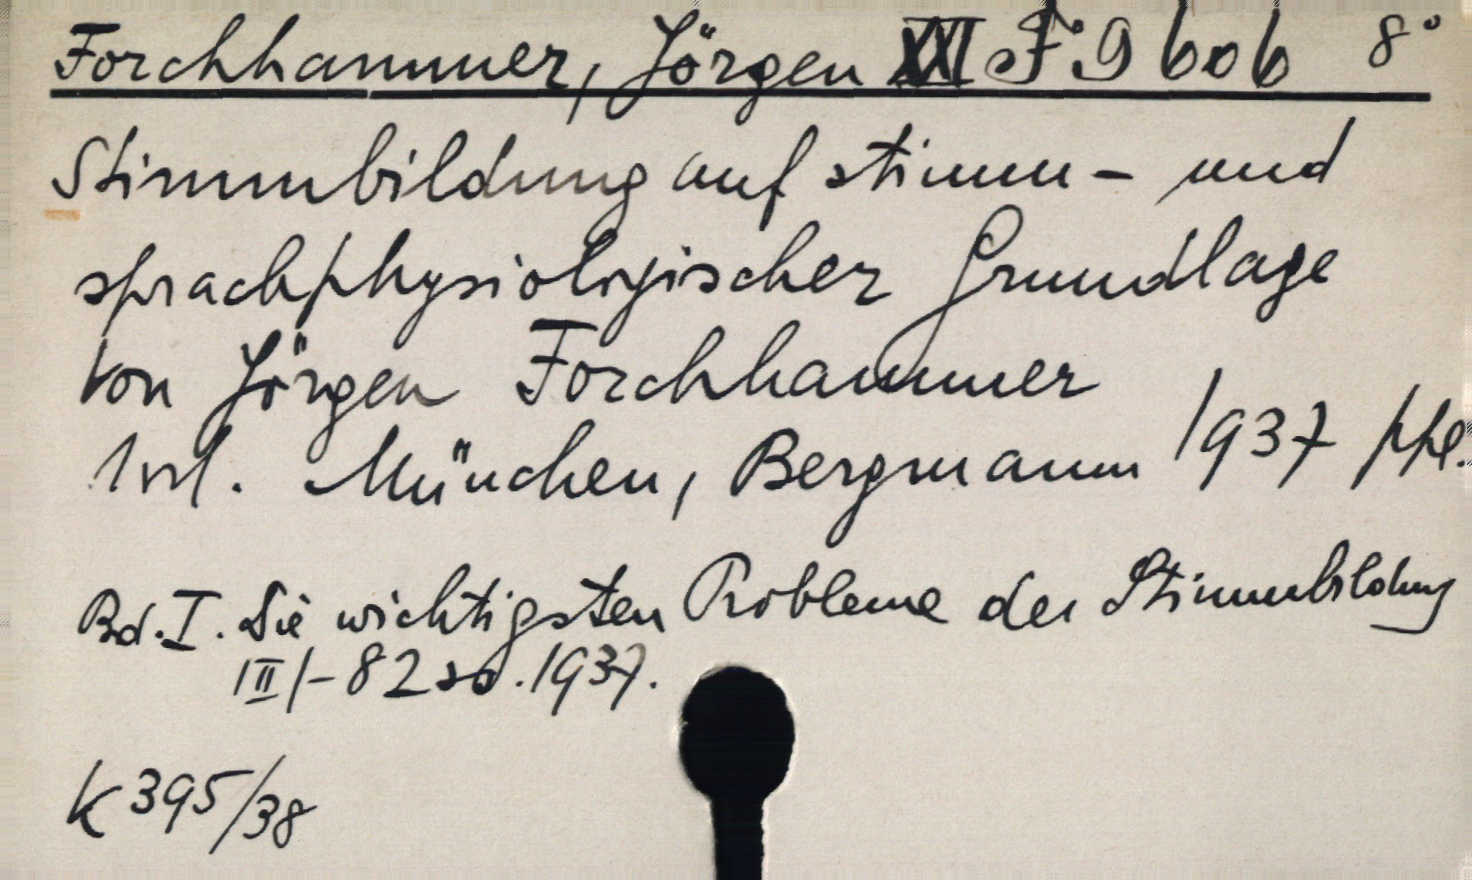 Forchhammer, Jörgen XXI F 9 606 8°
Stimmbildung auf stimm- und
sprachphysiologischer Grundlage
von Jörgen Forchhammer
1 vol. München, Bergmann 1937 ppl.
Bd. I. Die wichtigsten Probleme der Stimmbildung
III/-82 so. 1937.
K 395/38